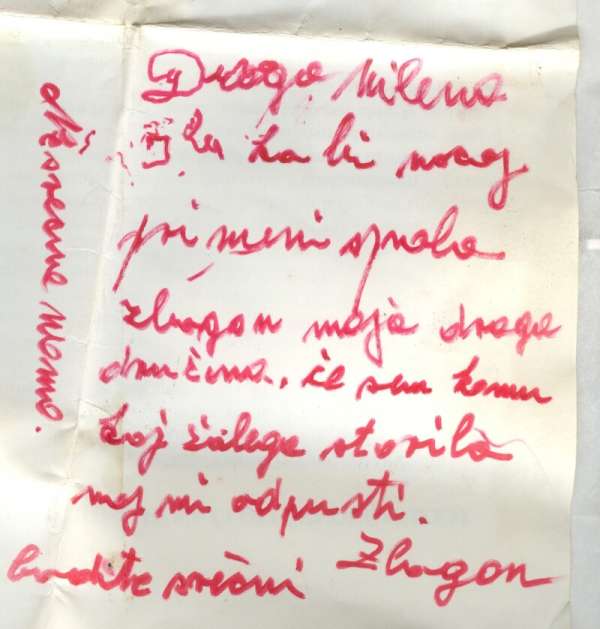 Draga Milena
ka bi nocoj
pri meni spala
zbogon moja draga
družina, če sem komu
kaj žalega storila
naj mi odpusti.
Zbogon
bodite srečni
Nesrečna Mama.